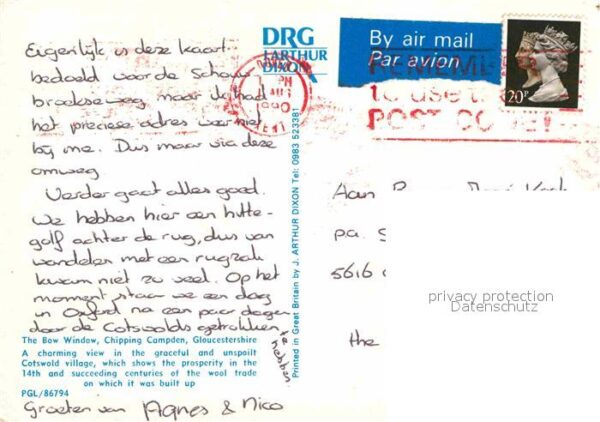 Eigenlijk is deze kaart
bedoeld voor de Schouw
broekseweg, maar ik had
het preciese adres weer niet
bij me. Dus maar via deze
omweg
Verder gaat alles goed.
We hebben hier een hitte-
golf achter de rug, dus van
wandelen met een rugzak
kwam niet zo veel. Op het
moment staan we een dag
in Oxford na een paar dagen
door de Cotswolds getrokken
te hebben
The Bow Window, Chipping Campden, Gloucestershire
A charming view in the graceful and unspoilt
Cotswold village, which shows the prosperity in the
14th and succeeding centuries of the wool trade
on which it was built up
PGL/86794
Groeten van Agnes & Nico
DRG
J. ARTHUR
DIXON
Printed in Great Britain by J. ARTHUR DIXON Tel: 0983 523381
By air mail
Par avion
20P
REMEMBER
to use the
POST CODE
PM
1990
KENT
Aan
p.a. S
5616
the
privacy protection
Datenschutz